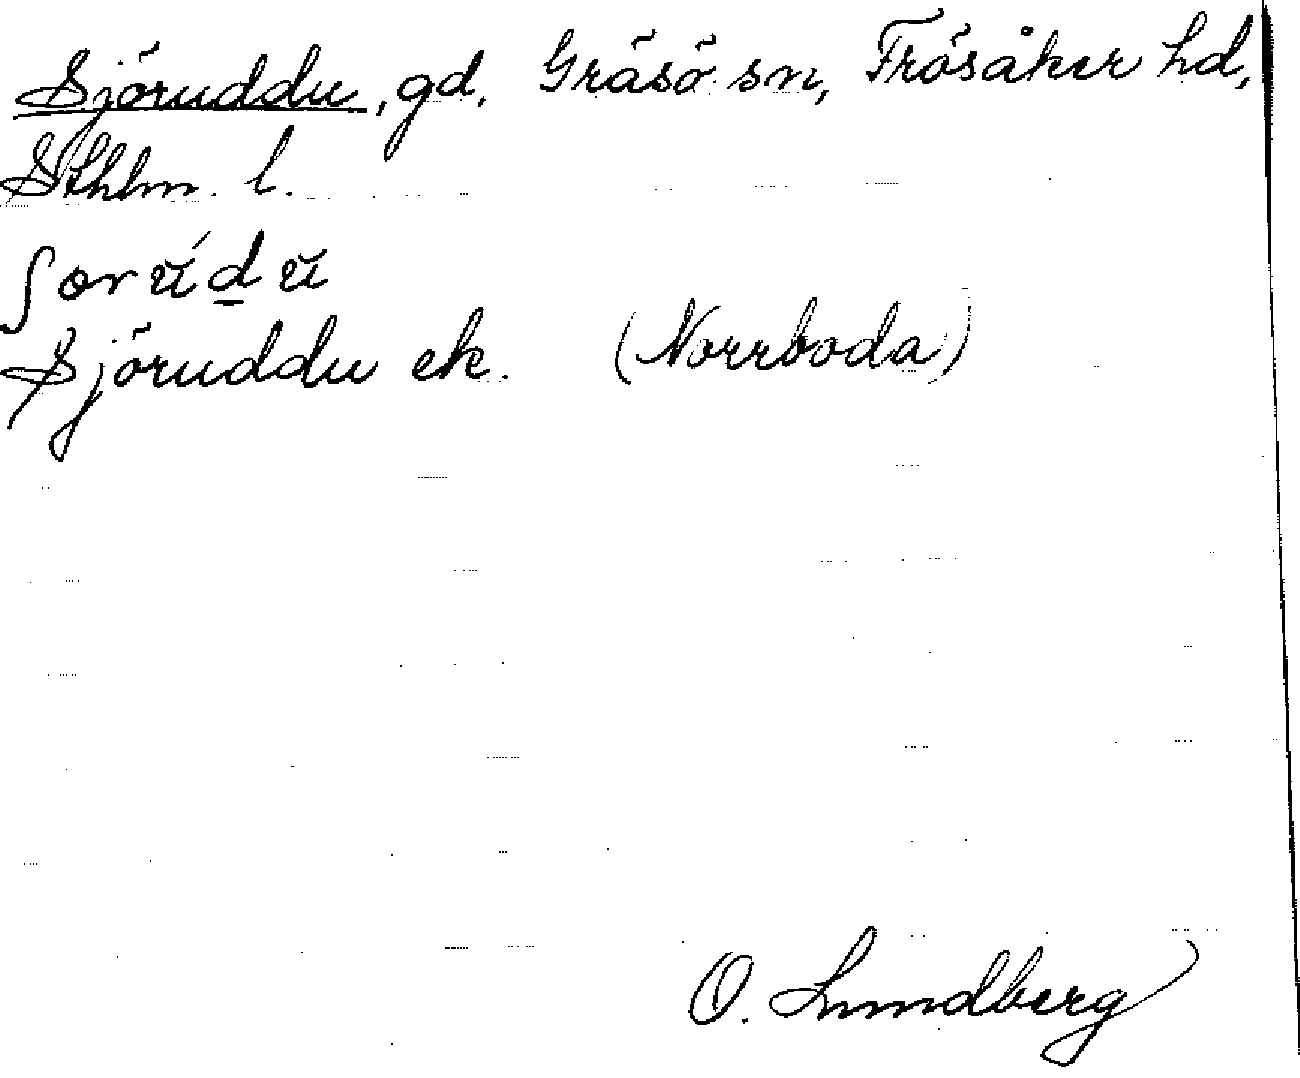 Sjöruddu, gd. Gräsö sn, Frösåker hd,
Sthlm. l.
Sjöruddu ek. (Norrboda)
O. Lundberg